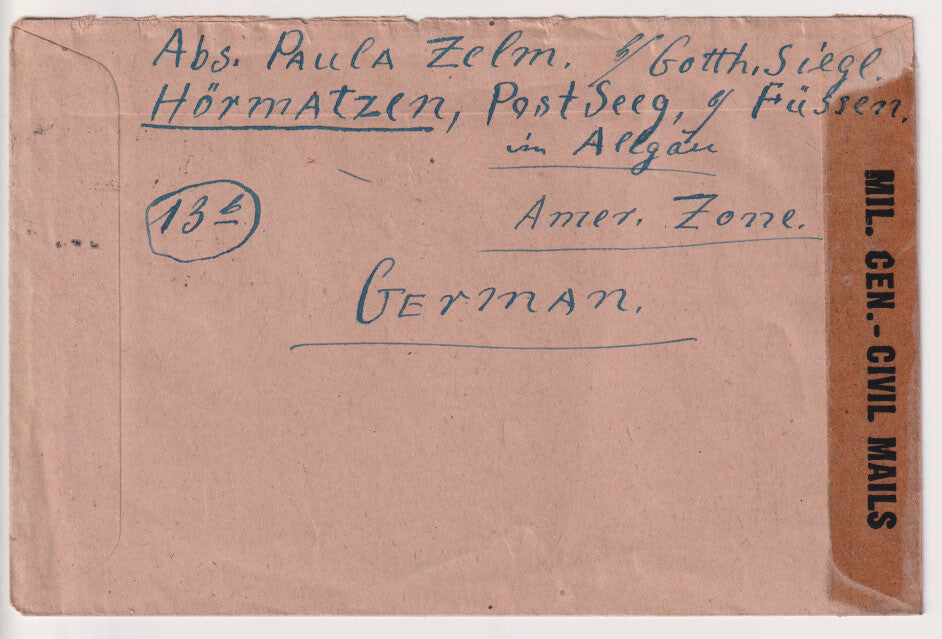 Abs. Paula Zelm. b/ Gotth. Siegl.
Hörmatzen, Post Seeg, b/ Füssen.
im Allgäu
13b
Amer. Zone.
German.
MIL. CEN.-CIVIL MAILS